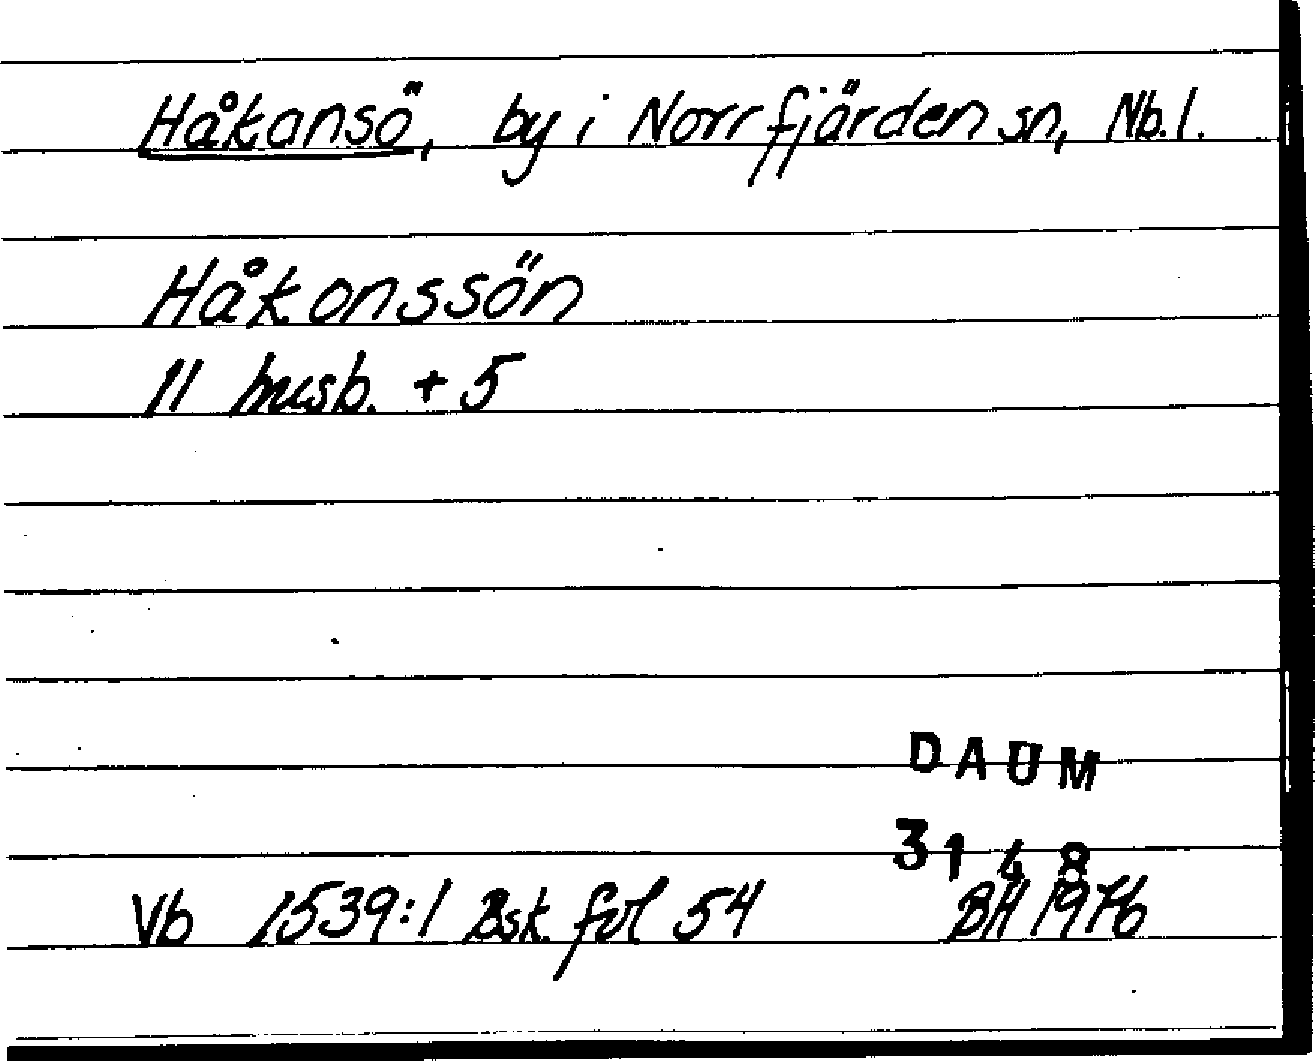 Håkansö, by i Norrfjärden sn, Nb.l.
Håkonssön
11 husb. + 5
DAUM
3148
Vb 1539:1 Bsk. fol 54 BH 1976